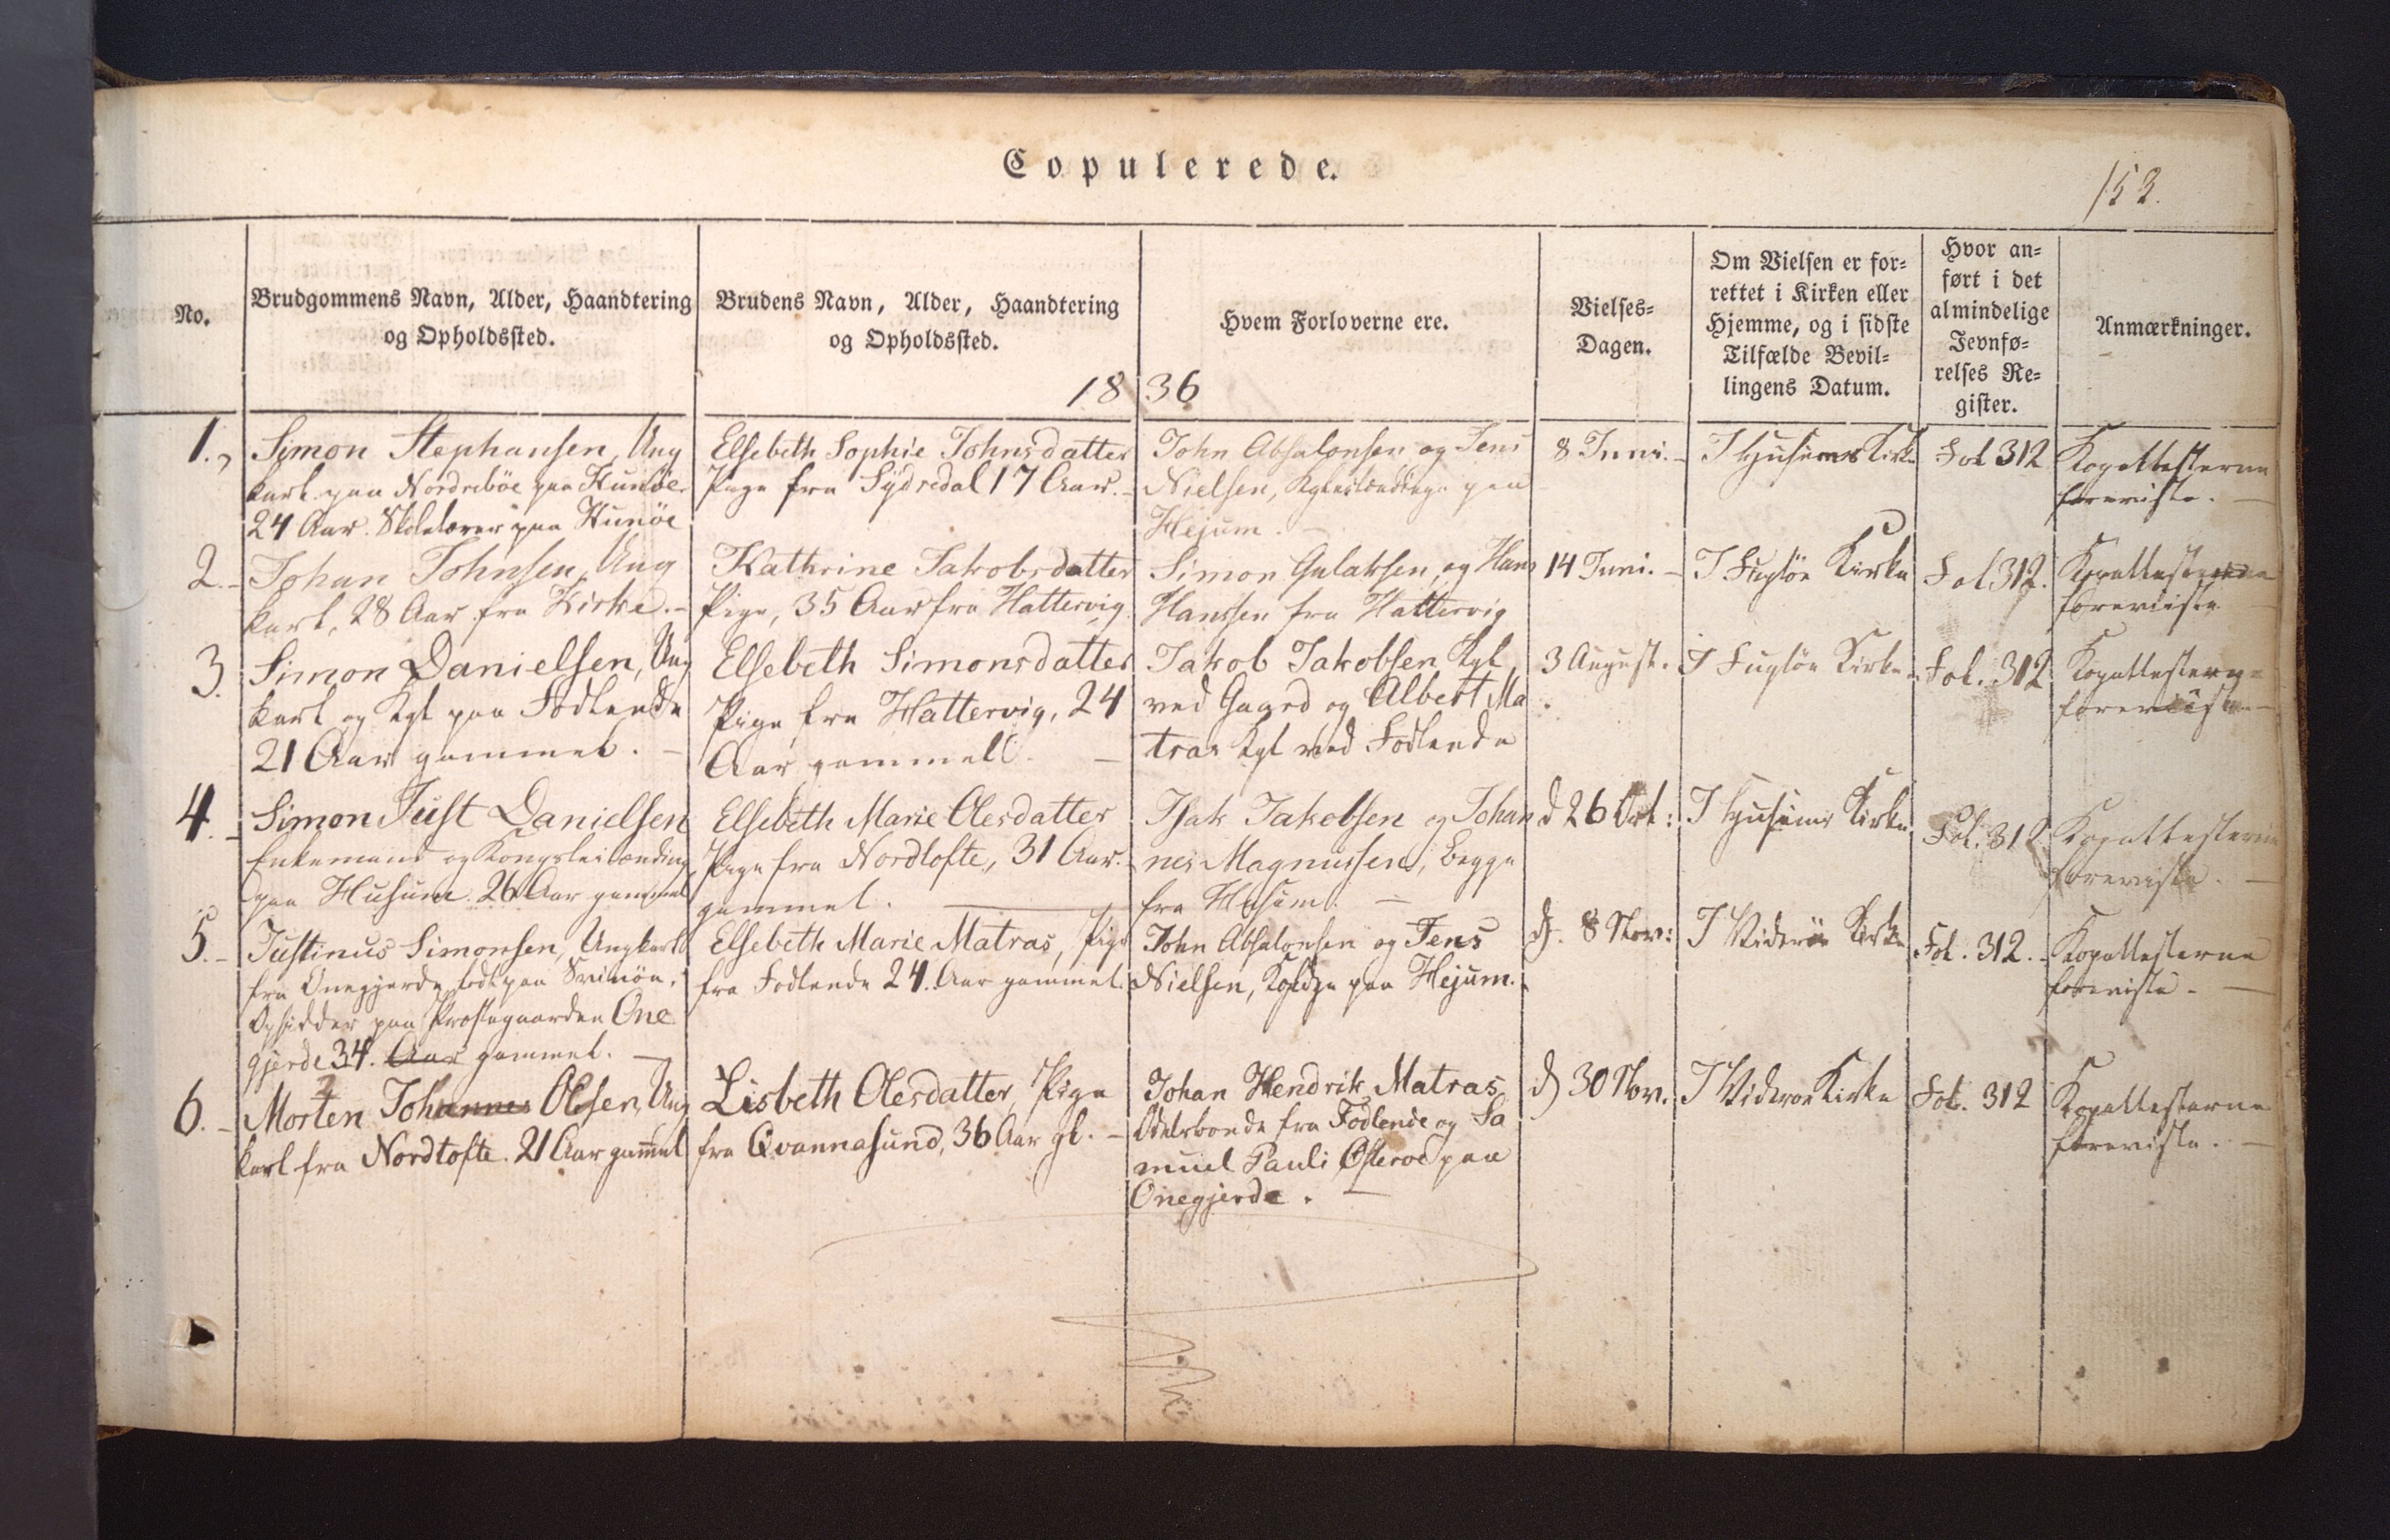 Copulerede.
152.
No.
Brudgommens Navn, Alder, Haandtering
og Opholdssted.
Brudens Navn, Alder, Haandtering
og Opholdssted.
Hvem Forloverne ere.
Vielses-
Dagen.
Om Vielsen er for-
rettet i Kirken eller
Hjemme, og i sidste
Tilfælde Bevil-
lingens Datum.
Hvor an-
ført i det
almindelige
Jevnfø-
relses Re-
gister.
Anmærkninger.
1836
1.
Simon Stephansen, Ung
karl paa Nordrebøe paa Kunöe
24 Aar. Skolelærer paa Kunöe
Elsebeth Sophie Johnsdatter
Pige fra Sydredal 17 Aar.
John Absalonsen og Jens
Nielsen, paa
Hejum.
8 Juni.
I Husums Kirke
Fol 312
Kopattesterne
foreviste.
2.
Johan Johnsen, Ung
karl, 28 Aar fra Kirke.
Kathrine Jakobsdatter
Pige, 35 Aar fra Hattervig
Simon Gulaksen, og Hans
Hanssen fra Hattervig
14 Juni.
I Fuglöe Kirke
Fol 312.
Kopattesterne
foreviiste
3.
Simon Danielsen, Ung
karl og Kgl paa Fodlende
21 Aar gammel.
Elsebeth Simonsdatter
Pige fra Hattervig, 24
Aar gammell.
Jakob Jakobsen Kgl
ved Gaard og Albert Ma
tras Kgl ved Fodlende
3 August.
I Fuglöe Kirke
Fol. 312
Kopattesterne
foreviiste
4.
Simon Just Danielsen
Enkemand og Kongsleilænding
paa Husum. 26 Aar gammel
Elsebeth Marie Olesdatter
Pige fra Nordtofte, 31 Aar.
gammel.
Isak Jakobsen og Johan
nes Magnussen, begge
fra Husum.
d 26 Oct:
I Husums Kirke
Fol. 312
Kopattesterne
foreviste.
5.
Justinus Simonsen, Ungkarl
fra Onegjerde, født paa Svinöe,
Opsidder paa Præstegaarden One
gjerde 34. Aar gammel.
Elsebeth Marie Matras, Pige
fra Fodlende 24. Aar gammel.
John Absalonsen og Jens
Nielsen, paa Hejum.
d. 8 Nov:
I Videröe Kirke
Fol. 312.
Kopattesterne
foreviste.
6.
Morten Johannes Olsen, Ung
karl fra Nordtofte. 21 Aar gammel
Lisbeth Olesdatter, Pige
fra Qvannasund, 36 Aar gl.
Johan Hendrik Matras,
Odelsbonde fra Fodlende og Sa
muel Pauli Østeroe paa
Onegjerde.
d) 30 Nov.
I Videroe Kirke
Fol. 312
Kopattesterne
foreviste.